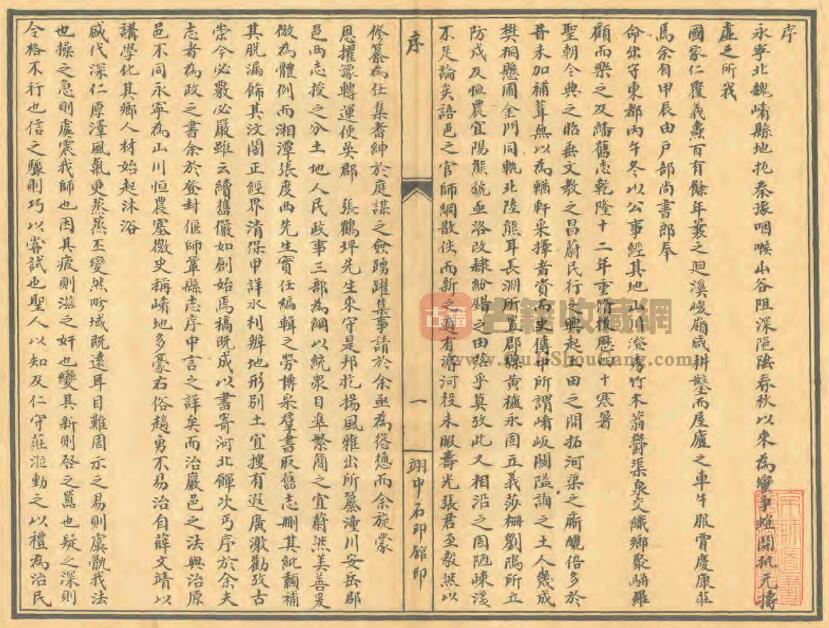 序
永寧北魏崤縣地扼秦豫咽喉山谷阻深阨隘春秋以來為戰爭
虛之所我
國家仁覆義燾百有餘年曩之迴溪峻嶺咸耕鑿而屋廬之車牛服賈慶康莊
焉余自甲辰由戶部尚書郎奉
命出守東都丙午冬以公事經其地山川澄秀竹木蓊鬱渠泉交織鄉聚駢羅
顧而樂之及繙舊志乾隆十二年重脩後歷四十寒暑
聖朝令典之昭垂文教之昌蔚民行之興起土田之開拓河渠之 倍多於
昔未加補葺無以為輶軒采擇者資而史傳中所謂崤岅關隘詢之土人幾成
樊桐懸圃金門同軌北陸熊耳長淵所置郡縣黃櫨永固立義莎柵劉隝所立
防戍及恒農宜陽熊 洛改隸紛錯之由 乎莫攷此又相沿之固陋
不足論矣語邑之官師網散佚而新之適有濬河役未暇壽光張君至毅然以
序
一
翊中石印館印
修纂為任集耆紳於庭謀之僉踴躍集事請於余亟為慫恿而余旋蒙
恩擢豫轉運使吳郡 張鶴坪先生來守是邦扢揚風雅出所纂潼川安岳郡
邑兩志授之分土地人民政事三部為綱以統眾目準繁簡之宜蔚然美善爰
倣為體例而湘潭張度西先生實任編輯之勞博采羣書取舊志刪其紕纇補
其脫漏飾其汶闇正經界清保甲詳水利辨地形別土宜搜有遐廣激勸攷古
崇今必覈必嚴雖云續舊儼如創始焉稿既成以書寄河北鐸次丐序於余夫
志者為政之書余於登封偃師鞏縣志序中言之詳矣而治嚴邑之法與治原
邑不同永寧為山川恒農塞徼史稱崤地多豪右俗趫勇不易治自薛文靖以
講學化其鄉人材始起沐浴
盛代深仁厚澤風氣更蒸蒸丕變然畛域既遠耳目難周示之易則虞翫我法
也操之急則虞震我師也因其疲則滋之奸也變其新則啟之囂也疑之深則
令格不行也信之驟則巧以嘗試也聖人以知及仁守莊涖動之以禮為治民
古籍收藏網
www.GujiShoucang.com